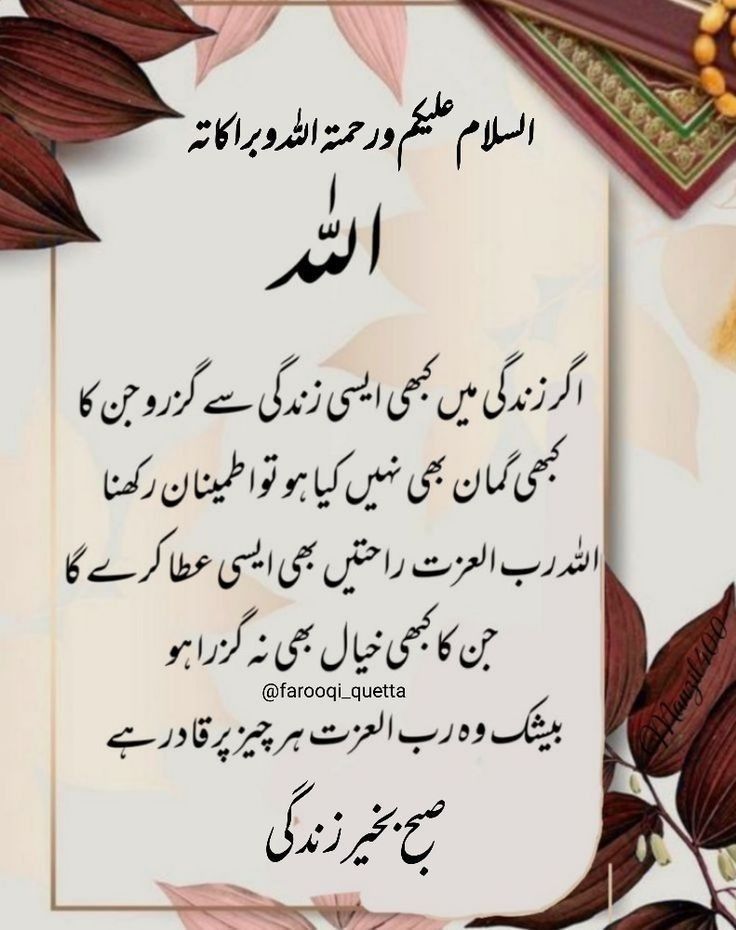 السلام علیکم ورحمتہ اللہ وبراکاتہ
اللہ
اگر زندگی میں کبھی ایسی زندگی سے گزرو جن کا
کبھی گمان بھی نہیں کیا ہو تو اطمینان رکھنا
اللہ رب العزت راحتیں بھی ایسی عطا کرے گا
جن کا کبھی خیال بھی نہ گزرا ہو
@farooqi_quetta
بیشک وہ رب العزت ہر چیز پر قادر ہے
صبح بخیر زندگی
Manzil400